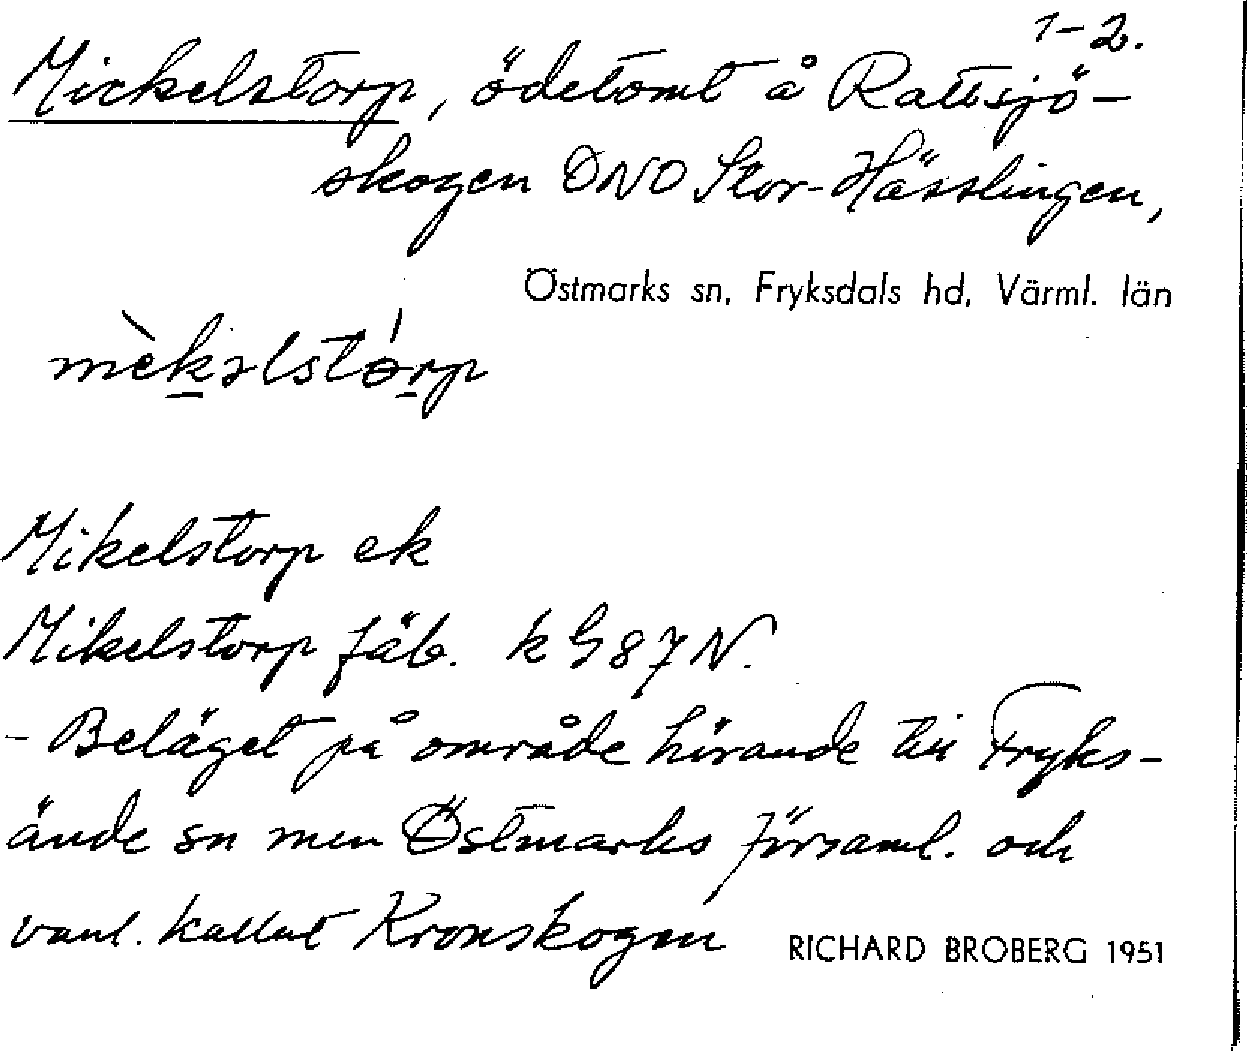 1-2.
Mickelstorp, ödetomt å Rattsjö-
skogen ONO Stor-Hässlingen,
Östmarks sn, Fryksdals hd, Värml. län
mèkəlstɔ́rp
Mikelstorp ek
Mikelstorp fäb. k G 87 N.
- Beläget på område hörande till Fryks-
ände sn men Östmarks församl. och
vanl. kallat Kronskogen
RICHARD BROBERG 1951